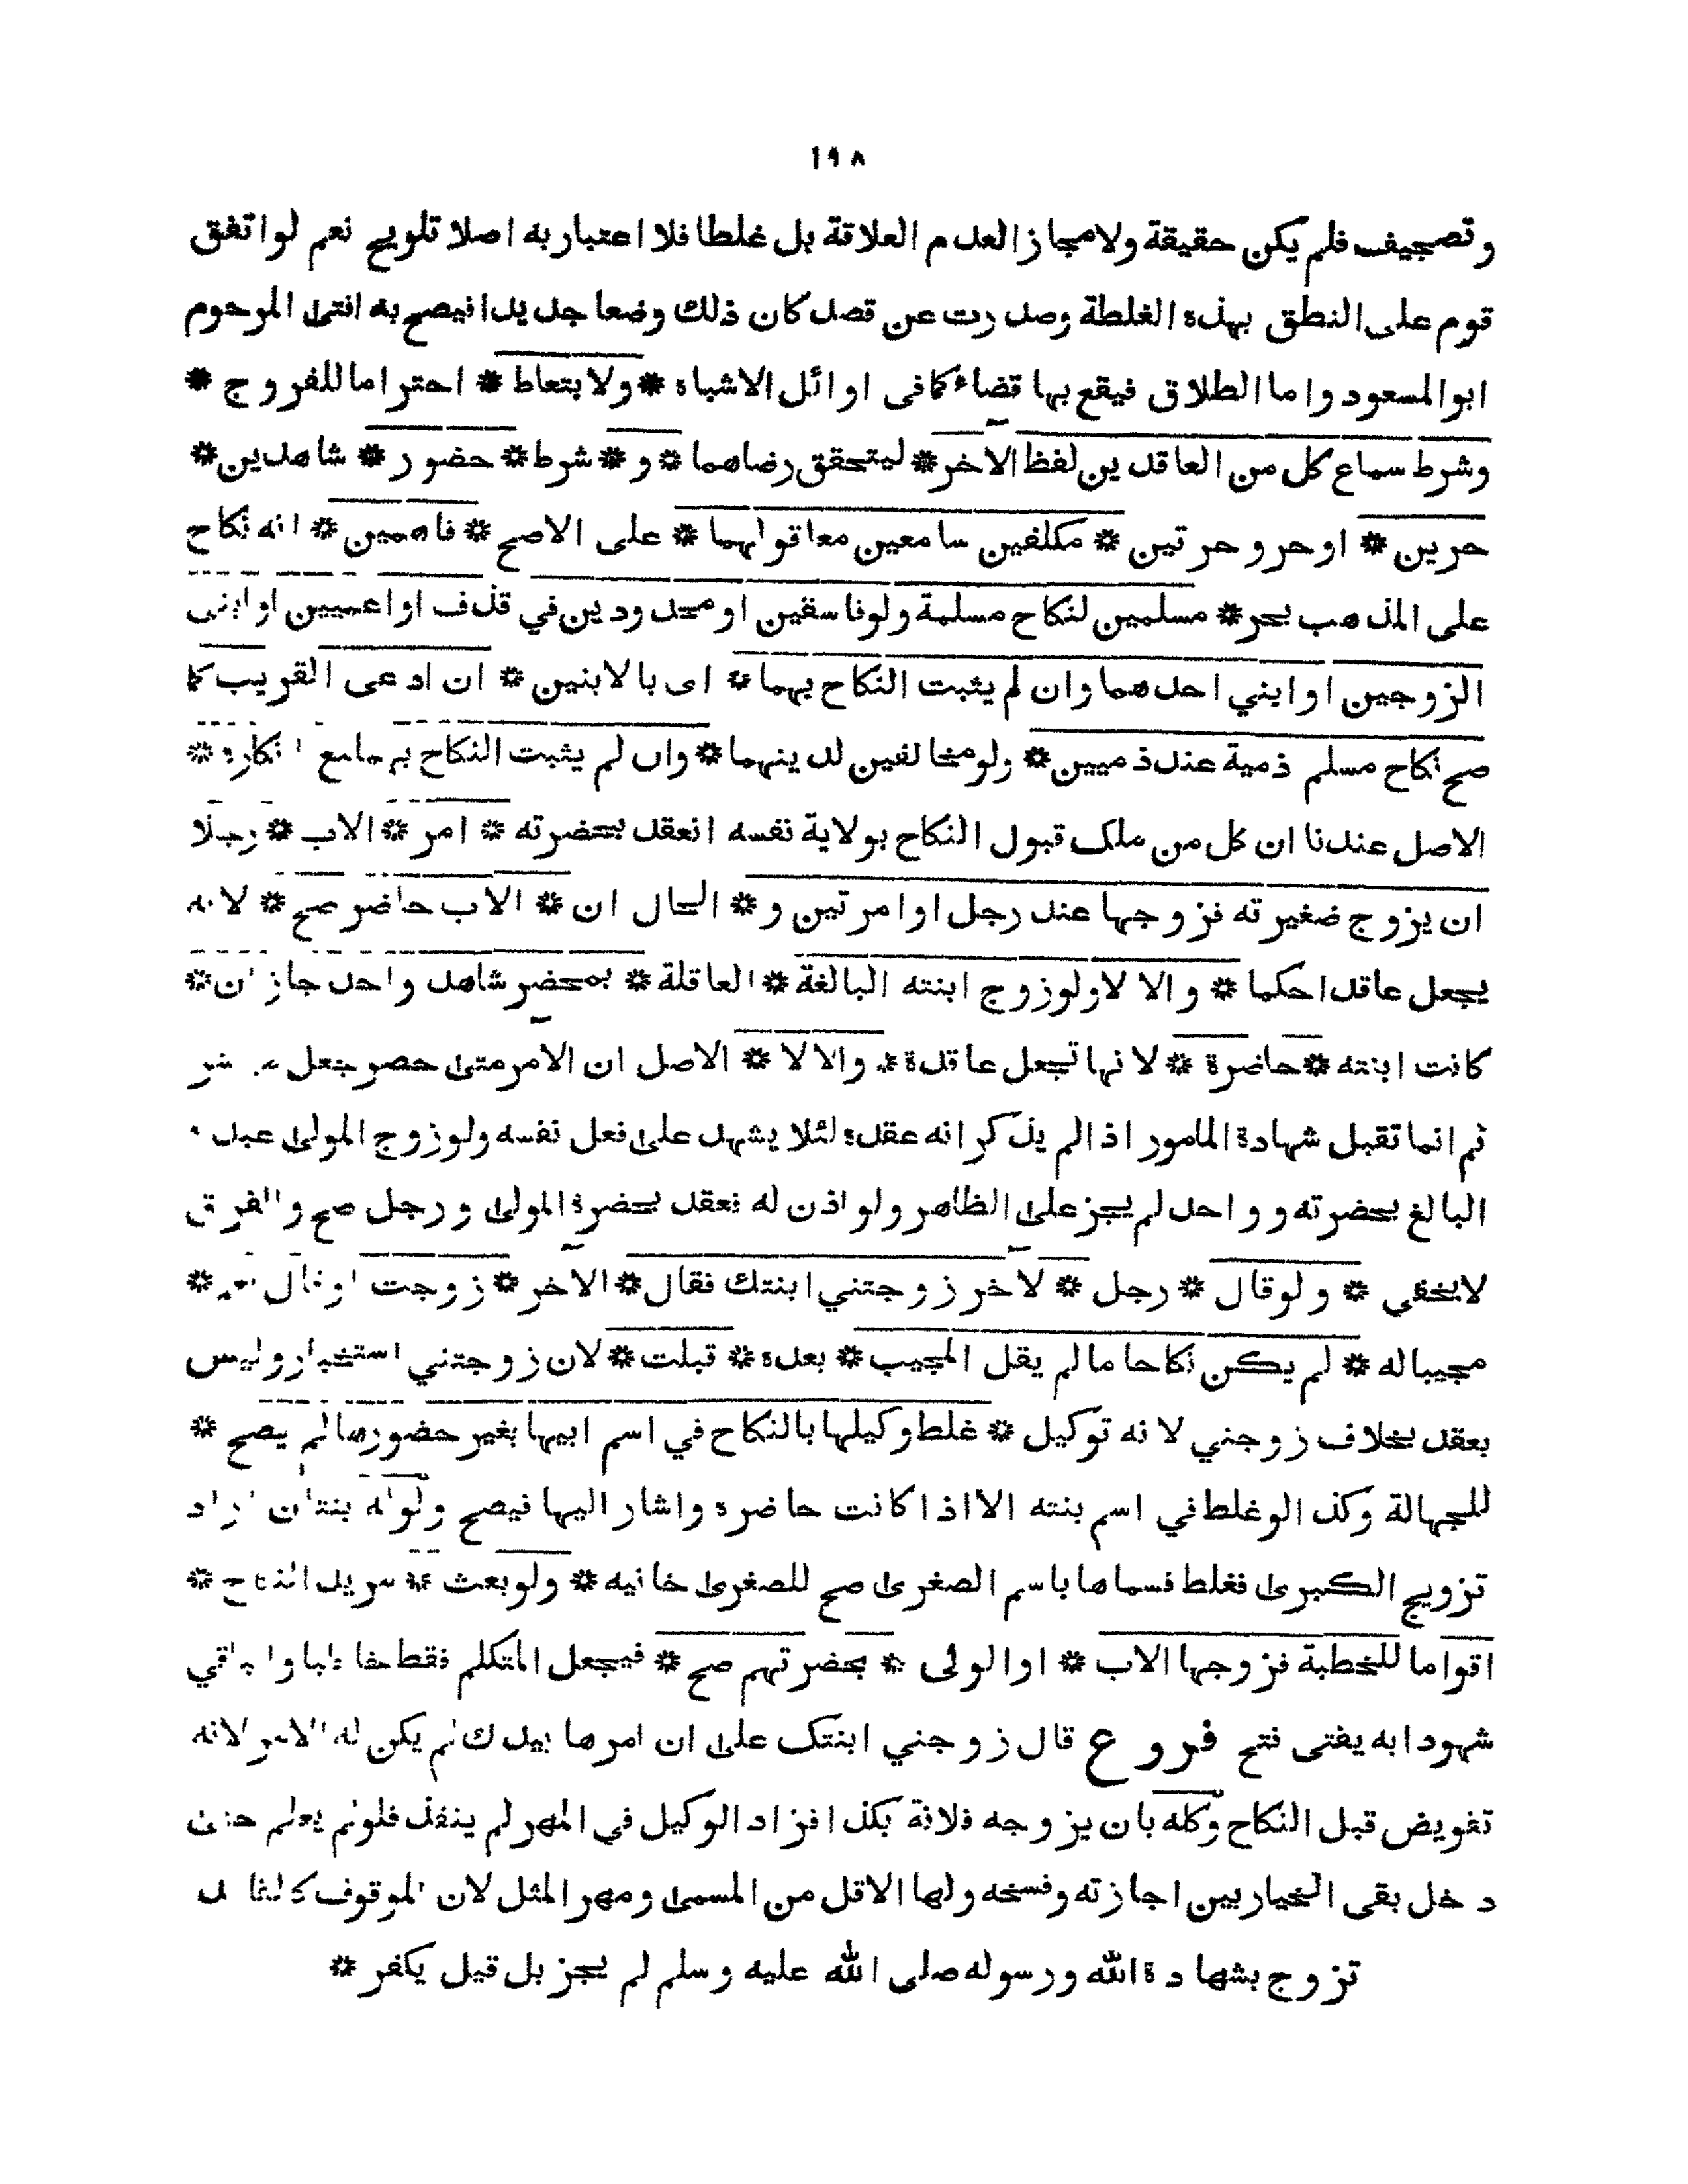 ١٩٨
وتصحيف فلم يكن حقيقة ولا مجازا لعدم العلاقة بل غلطا فلا اعتبار به اصلا تلويح نعم لو اتفق
قوم على النطق بهذه الغلطة وصدرت عن قصد كان ذلك وضعا جديدا فيصح به افتى المرحوم
ابو المسعود واما الطلاق فيقع بها قضاء كما فى اوائل الاشباه * ولا بتعاط * احتراما للفروج *
وشرط سماع كل من العاقدين لفظ الاخر * ليتحقق رضاهما * و * شرط * حضور * شاهدين *
حرين * او حر وحرتين * مكلفين سامعين معا قولهما * على الاصح * فاهمين * انه نكاح
على المذهب بحر * مسلمين لنكاح مسلمة ولو فاسقين او محدودين في قذف او اعميين او ابنى
الزوجين او ابني احدهما وان لم يثبت النكاح بهما * اى بالابنين * ان ادعى القريب كما
صح نكاح مسلم ذمية عند ذميين * ولو مخالفين لدينهما * وان لم يثبت النكاح بهما مع انكاره *
الاصل عندنا ان كل من ملك قبول النكاح بولاية نفسه انعقد بحضرته * امر * الاب * رجلا
ان يزوج صغيرته فزوجها عند رجل او امرتين و * الحال ان * الاب حاضر صح * لانه
يجعل عاقدا حكما * والا لا ولو زوج ابنته البالغة * العاقلة * بمحضر شاهد واحد جاز ان *
كانت ابنته * حاضرة * لانها تجعل عاقدة * والا لا * الاصل ان الامر متى حضر جعل
ثم انما تقبل شهادة المامور اذا لم يذكر انه عقده لئلا يشهد على فعل نفسه ولو زوج المولى عبده
البالغ بحضرته وواحد لم يجز على الظاهر ولو اذن له فعقد بحضرة المولى ورجل صح والفرق
لا يخفي * ولو قال * رجل * لاخر زوجتني ابنتك فقال * الاخر * زوجت او قال نعم *
مجيبا له * لم يكن نكاحا ما لم يقل المجيب * بعده * قبلت * لان زوجتني استخبار وليس
بعقد بخلاف زوجني لانه توكيل * غلط وكيلها بالنكاح في اسم ابيها بغير حضورها لم يصح *
للجهالة وكذا لو غلط في اسم بنته الا اذا كانت حاضره واشار اليها فيصح ولو له بنتان اراد
تزويج الكبرى فغلط فسماها باسم الصغرى صح للصغرى خانيه * ولو بعث * مريد النكاح *
اقواما للخطبة فزوجها الاب * او الولى * بحضرتهم صح * فيجعل المتكلم فقط خاطبا والباقي
شهودا به يفتى فتح فروع قال زوجني ابنتك على ان امرها بيدك لم يكن له الامر لانه
تفويض قبل النكاح وكله بان يزوجه فلانة بكذا فزاد الوكيل في المهر لم ينفذ فلو لم يعلم حتى
دخل بقى الخيار بين اجازته وفسخه ولها الاقل من المسمى ومهر المثل لان الموقوف كالفاسد
تزوج بشهادة الله ورسوله صلى الله عليه وسلم لم يجز بل قيل يكفر *